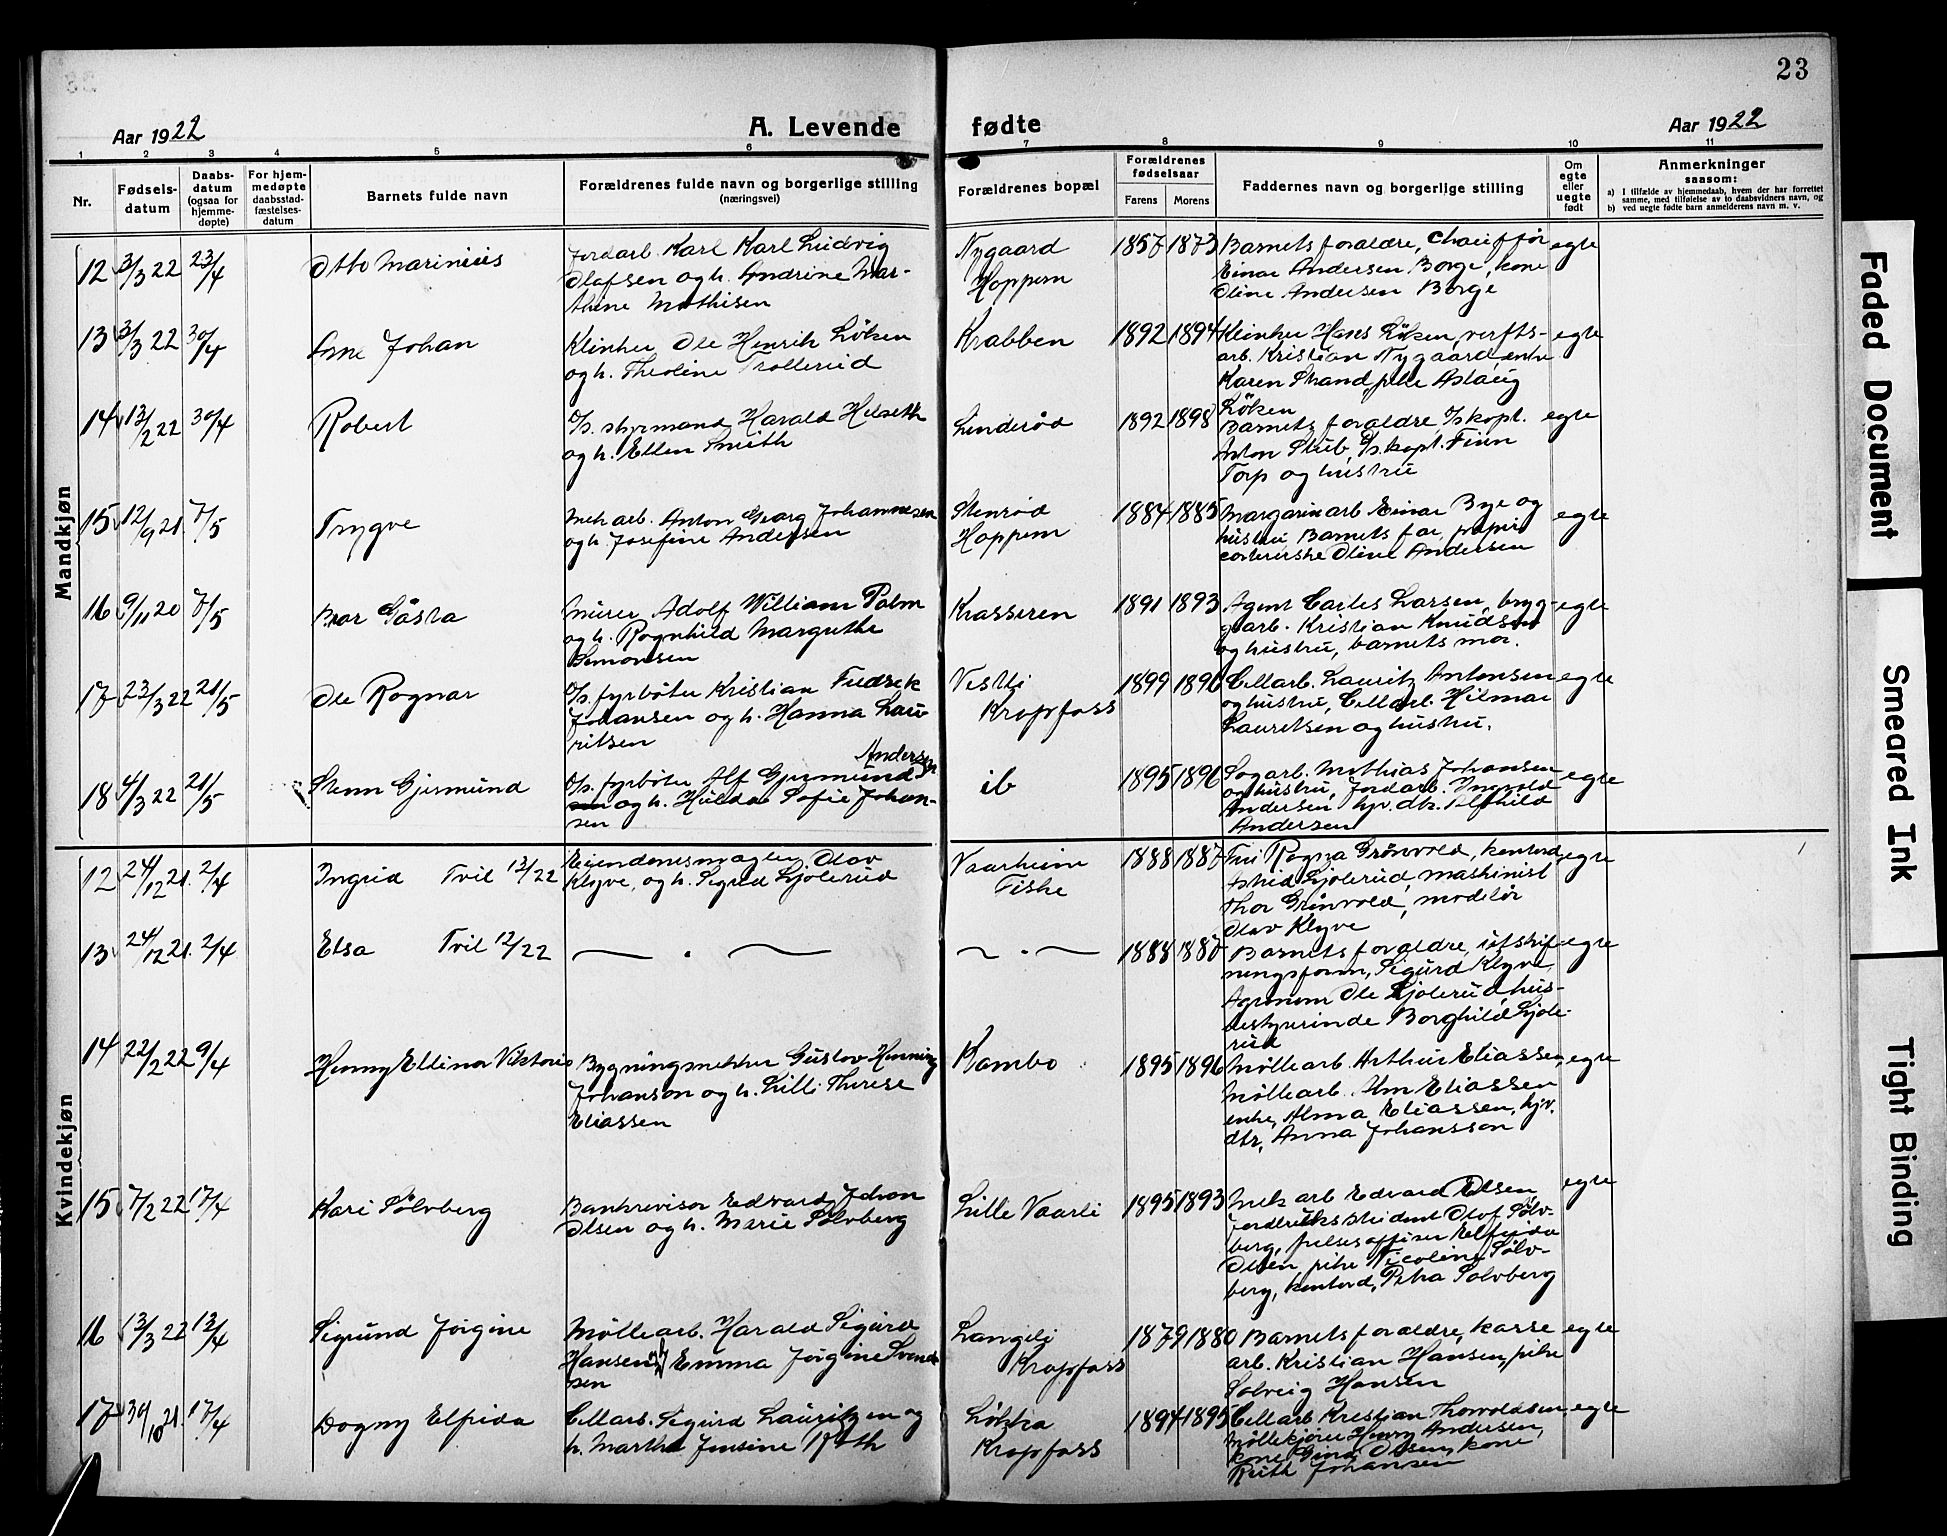 23
Aar 1922
A. Levende
fødte
Aar 1922
1 2 3 4 5 6 7 8 9 10 11
Nr.
Fødsels-
datum
Daabs-
datum
(ogsaa for
hjemme-
døpte)
For hjem-
medøpte
daabsstad-
fæstelses-
datum
Barnets fulde navn
Forældrenes fulde navn og borgerlige stilling
(næringsvei)
Forældrenes bopæl
Forældrenes
fødselsaar
Farens
Morens
Faddernes navn og borgerlige stilling
Om
egte
eller
uegte
født
Anmerkninger
saasom:
a) I tilfælde av hjemmedaab, hvem der har forrettet
samme, med tilføielse av to daabsvidners navn, og
b) ved uegte fødte barn anmelderens navn m. v.
Mandkjøn
12 3/3 22 23/4 Otto Marinius
Jordarb. Karl Karl Ludvig
Olafsen og h. Andrine Mar-
thine Mathisen
Nygaard
Hoppern
1857 1873
Barnets foraldre, chauffør
Einar Andersen Borge, kone
Oline Andersen Borge
egte
13 3/3 22 30/4 Arne Johan
Klinker Ole Henrik Løken
og h. Theoline Trollerud
Krabben
1892 1894
Klinker Hans Løken, verfts-
arb. Kristian Nygaard, enke
Karen Strand, pike Aslaug
Løken
egte
14 13/2 22 30/4 Robert
D/s. styrmand Harald Helseth
og h. Ellen Smith
Linderød
1892 1898
Barnets foraldre D/s kapt.
Anton Stub, D/s. kapt. Finn
Torp og hustru
egte
15 12/9 21. 7/5 Trygve
Mek arb. Anton Georg Johannesen
og h. Josefine Andersen
Stenrød
Hoppern
1884 1885
Margarinarb Einar Bye og
hustru Barnets far, papir
sortererske Oline Andersen
egte
16 9/11 20 7/5 Bror Gösta
Murer Adolf William Palm
og h. Ragnhild Margrethe
Simonsen
Krasseren
1891 1893
Agent Carles Larsen, bryg-
garb. Kristian Knudsen
og hustru, barnets mor.
egte
17 23/3 22 21/5 Ole Ragnar
D/s. fyrbøter Kristian Fredrek
Johansen og h. Hanna Lau-
ritsen
Vestli
Kropfoss
1899 1896
Cellarb. Lauritz Antonsen
og hustru, Cellarb. Hilmar
Lauretsen og hustru.
egte
18 4/3 22 21/5 Stenn Gjermund
Andersen
D/s. fyrbøter Alf Gjermund
og h. Hilda Sofie Johan-
sen
ib
1895 1896
Sagarb. Mathias Johansen
og hustru, Jordarb. Ingvald
Andersen hjv. dtr. Alfhild
Andersen
egte
Kvindekjøn
12 24/12 21. 2/4 Ingrid Tvil 13/22
Eiendomsmægler Olav
Klyve, og h. Sigrid Ljølerud
Vaarheim
Fiske
1888 1887
Fru Ragna Grønvold, kontord.
Astrid Ljølerud, maskinist
Thor Grønvold, modelør
Olav Klyve
egte
13 24/12 21. 2/4 Elsa Tvil 12/22
— . —
— . —
1888 1887
Barnets foraldre, utskif-
ningsform, Sigurd Klyve,
Agronom Ole Ljølerud, hus-
bestyrerinde Borghild Ljøle-
rud
egte
14 22/2 22 9/4 Henny Ellinor Viktoria
Bygningsnekker Gustav Henning
Johanson og h. Lilli Therese
Eliassen
Kambo
1895 1896
Møllearb. Arthur Eliassen,
Møllearb. Alm Eliassen
enke, Alma Eliassen, hjv.
dtr, Anna Johansson
egte
15 7/2 22 17/4 Kari Sølvberg
Bankrevisor Edvard Johan
Olsen og h. Marie Sølvberg
Lille Vaarli
1895 1893
Mek arb Edvard Olsen,
Jordbruksstudent Olof Sølv-
berg, frelsesoffiser Elfrida
Olsen, pike Nicoline Sølv-
berg, kontord, Petra Sølvberg
egte
16 13/3 22 13/4 Sigrund Jørgine
Møllearb. Harald Sigurd
Hansen og h Emma Jørgine Svend-
sen
Langeli
Kropfoss
1879 1880
Barnets foraldre, kasse
arb. Kristian Hansen, pike
Solveig Hansen
egte
17 30/10 21. 17/4 Dagny Elfrida
Cellarb. Sigurd Lauritzen og
h. Martha Jensine Roth
Løkka
Kropfoss
1894 1895
Cellarb Kristian Thorvaldsen,
Møllekjører Henry Andersen,
kone Gina Olsen, kone
Ruth Johansen
egte
Faded Document
Smeared Ink
Tight Binding